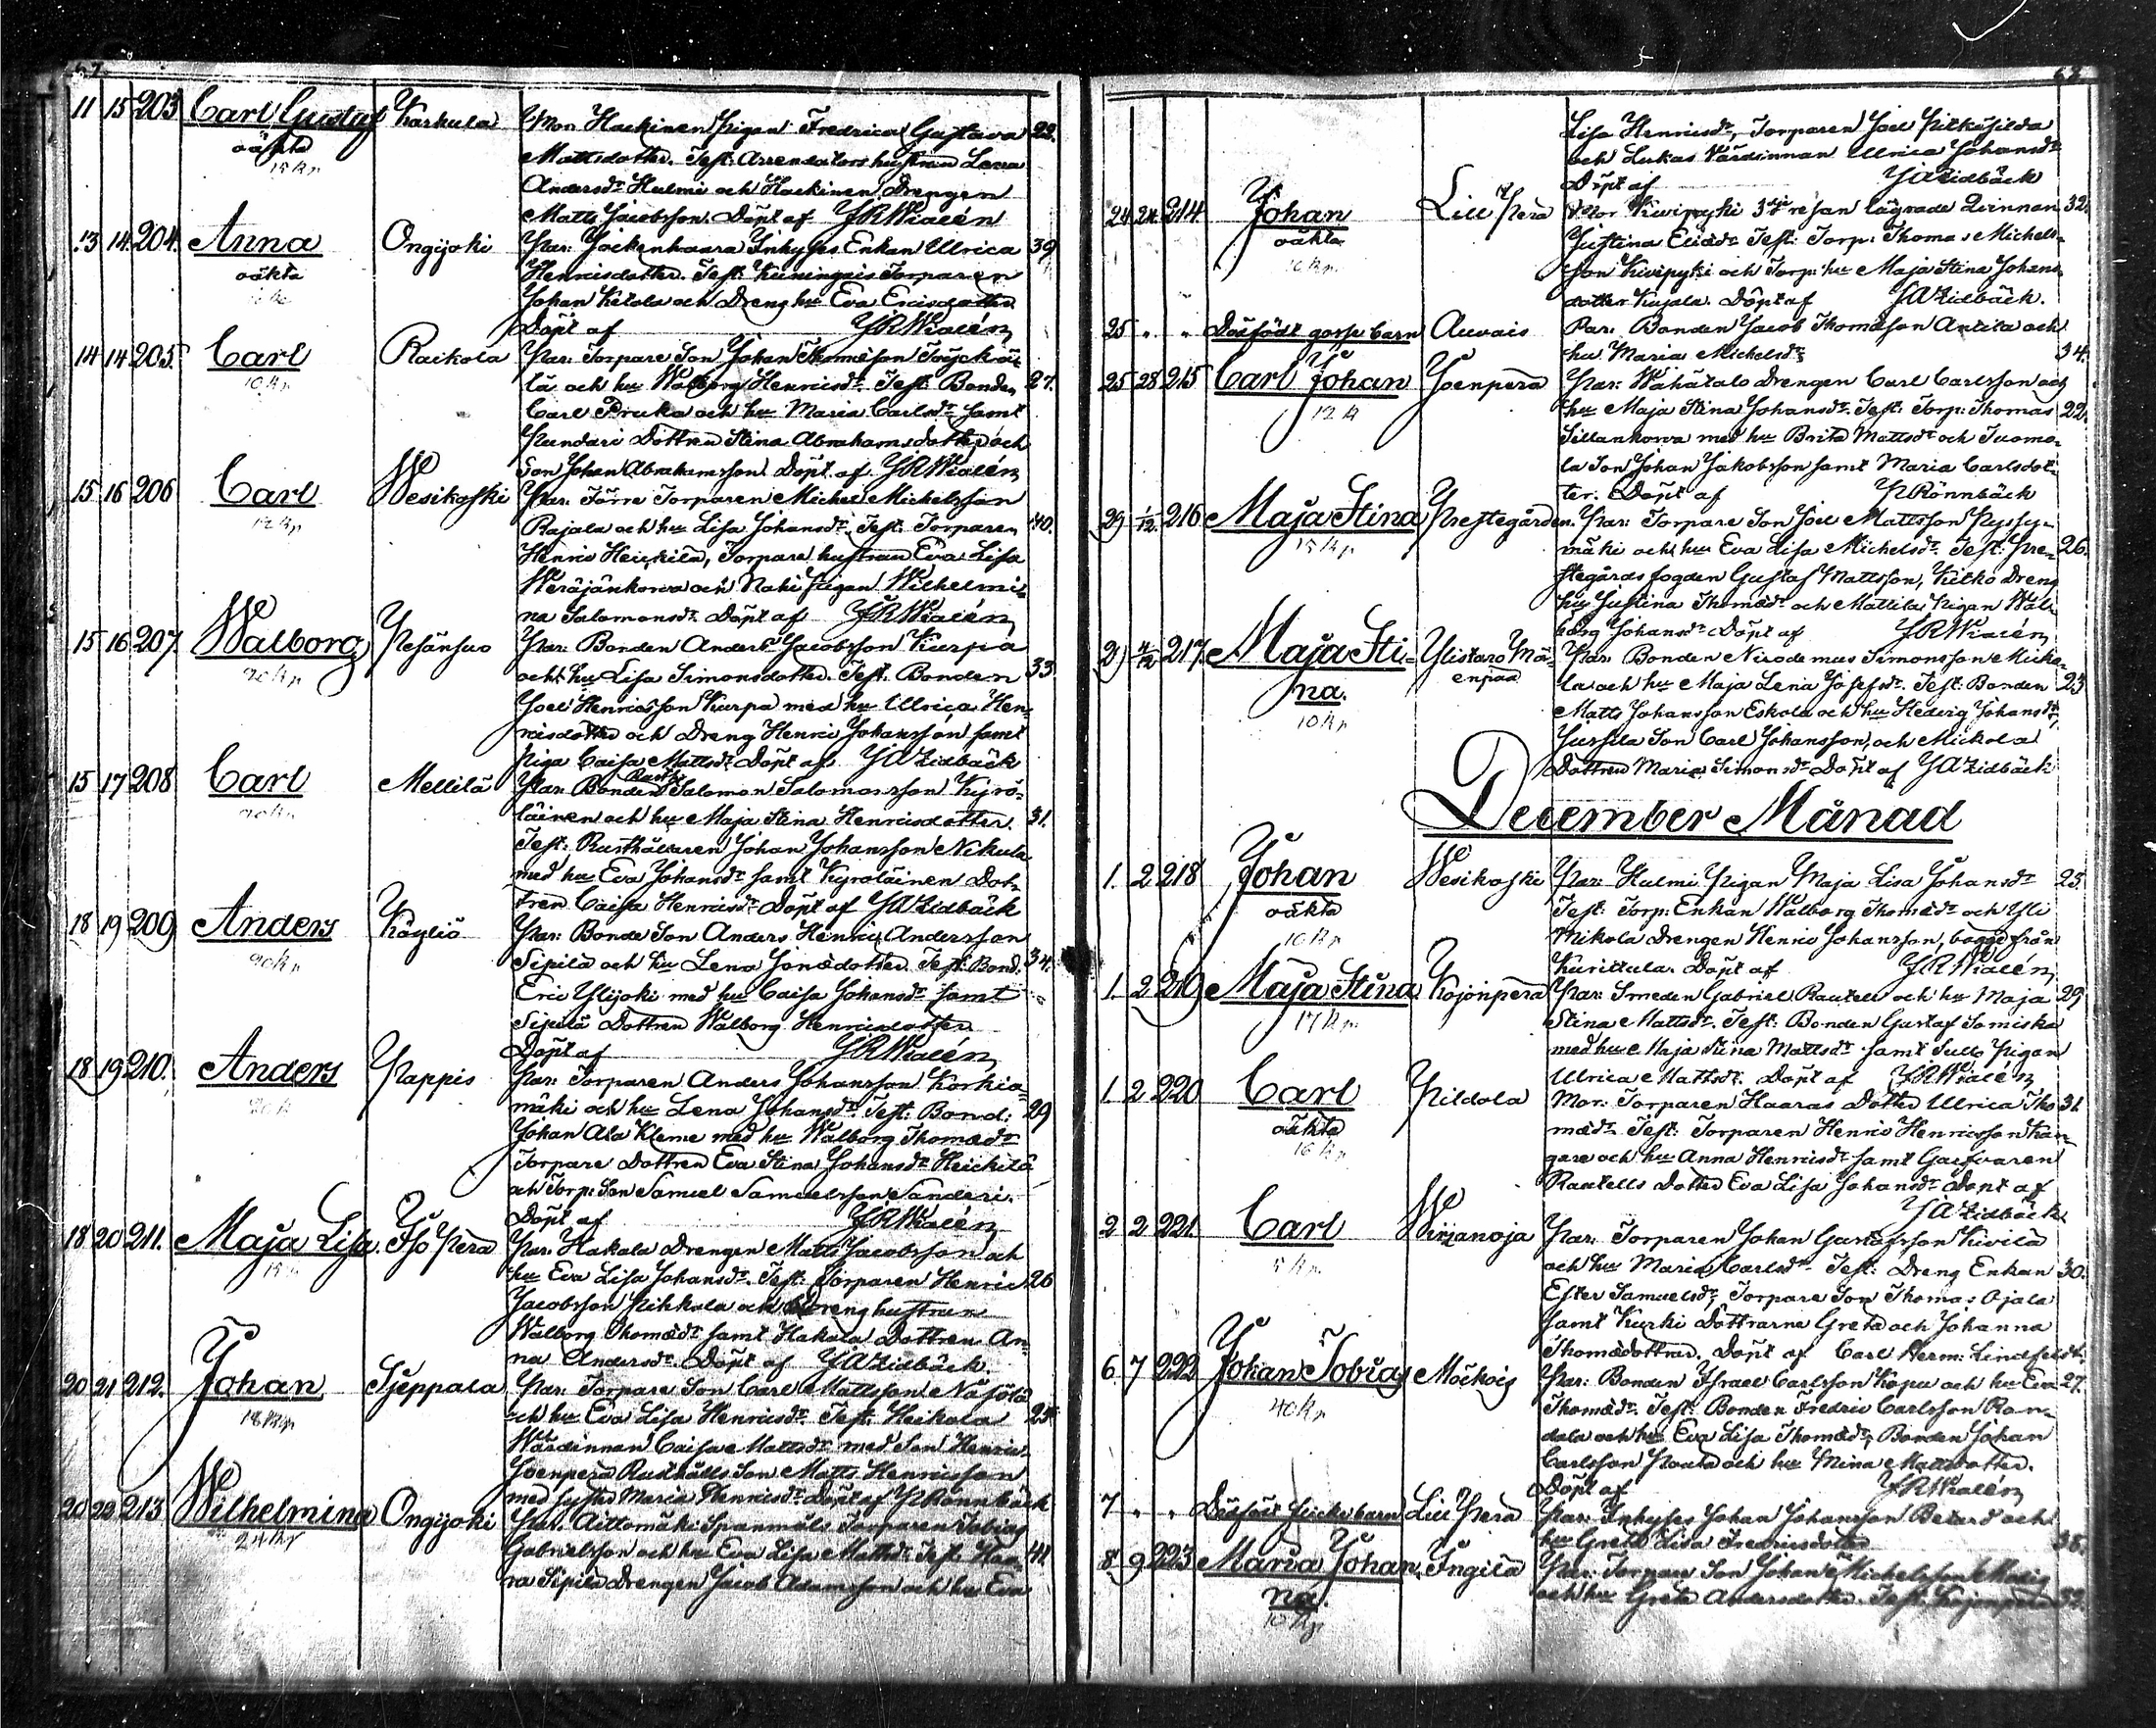 67.
11 15 203 Carl Gustaf Karkula Mor. Hackinen Pigan Fredrica Gustava 22.
oäkta Mattsdotter. Test: Arrendators hustrun Lena
15 kp Andersdr Hulmi och Hackinen Drengen
Matts Jacobsson. Döpt af JRWialén
13 14 204. Anna Ongijoki Par: Jockenhaara Inhyses Enkan Ulrica 39
oäkta Henricsdotter. Test: Kuningais Torparen
Johan Ketola och Dreng hu Eva Ericsdotter
Döpt af JRWialén
14 14 205 Carl Raikola Par: Torpare Son Johan Thomasson
10 kp lä och hu Walborg Henricsdr. Test: Bonden 27.
Carl Pruka och hu Maria Carlsdr samt
Pundari Dottren Stina Abrahamsdotter och
Son Johan Abrahamsson. Döpt af JRWialén
15 16 206 Carl Wesikoski Par: Förre Torparen Michel Michelsson
12 kp Rajala och hu Lisa Johansdr. Test: Torparen 40.
Henric Heickilä, Torpare hustrun Eva Lisa
Weräjänkorva och Naki Pigan Wilhelmi-
na Salomonsdr. Döpt af JRWialén
15 16 207 Walborg Pesänsuo Par: Bonden Anders Jacobsson Kurpa
20 kp och hu Lisa Simonsdotter. Test: Bonden 33
Joel Henricsson Kurpa med hu Ulrica Hen-
ricsdotter och Dreng Henric Johansson samt
Piga Caisa Mattsdr. Döpt af JAZidbäck
15 17 208 Carl Mellilä Par: Bonden Salomon Salomonsson Kyrö-
20 kp läinen och hu Maja Stina Henricsdotter. 31.
Test: Rusthållaren Johan Johansson Nikula
med hu Eva Johansdr samt Kyroläinen Dot-
tren Caisa Henricsdr. Döpt af JAZidbäck
18 19 209 Anders Köyliö Par: Bonde Son Anders Henric Andersson
20 kp Sipilä och hu Lena Jonædotter. Test: Bond. 34.
Eric Ylijoki med hu Caisa Johansdr samt
Sipilä Dottren Walborg Henricsdotter
Döpt af JRWialén
18 19 210. Anders Pappis Par: Torparen Anders Johansson Korkia-
20 k mäki och hu Lena Johansdr. Test: Bond: 29
Johan Ala Kleme med hu Walborg Thomædr
Torpare Dottren Eva Stina Johansdr Heickilä
och Torp: Son Samuel Samuelsson Sanderi.
Döpt af JRWialén
18 20 211. Maja Lisa Iso Pera Par: Hakala Drengen Matts Jacobsson och
hu Eva Lisa Johansdr. Test: Torparen Henric 26
Jacobsson Pihkala och Dreng hustrun
Walborg Thomædr samt Hakala Dottren An-
na Andersdr. Döpt af JAZidbäck
20 21 212. Johan Sjeppala Par: Torpare Son Carl Mattsson Näsölä
18 kp och hu Eva Lisa Henricsdr. Test: Heikola 25
Wärdinnan Caisa Mattsdr med Son Henric
Joenpera Rusthålls Son Matts Henricsson
med syster Maria Henricsdr. Döpt af Rönnbäck
20 22 213 Wilhelmina Ongijoki Par: Aittomäki Spanmåls Torparen Tobias
24 kp Gabrielsson och hu Eva Lisa Mattsdr. Test: Haa- 41
ra Sipilä Drengen Jacob Adamsson och hu Eva
68
Lisa Henricsdr, Torparen Joel
och Lukas Wärdinnan Ulrica Johansdr
Döpt af JAZidbäck
24 24 214 Johan Lill Pera Mor Kivipyki 3dje resan lägrade Qvinnan 32.
oäkta Justina Eliædr Test: Torp: Thomas Michels-
10 kp son Kivipyki och Torp: hu Maja Stina Johans
dotter Kujala. Döpt af JAZidbäck.
25 " " Dödfödt gosse barn Auvais Par: Bonden Jacob Thomasson Antila och
hu Maria Michelsdr 34.
25 28 215 Carl Johan Joenpera Par: Wähätalo Drengen Carl Carlsson och
12 k hu Maja Stina Johansdr. Test: Torp: Thomas 22.
Sillankorva med hu Brita Mattsdr och Tuomo-
la Son Johan Jakobsson samt Maria Carlsdot-
ter. Döpt af Rönnbäck
29 1/12 216 Maja Stina Prestegården. Par: Torpare Son Joel Mattsson Pyssy-
15 kp mäki och hu Eva Lisa Michelsdr. Test: Pre- 26.
stegårds fogden Gustaf Mattsson, Kitko Dreng
hu Justina Thomædr och Mattila Pigan Wal-
borg Johansdr Döpt af JRWialén
29 4/12 217. Maja Sti- Ylistaro Mä- Par: Bonden Nicodemus Simonsson Micko-
na. enpää la och hu Maja Lena Josefsdr. Test: Bonden 23
10 kp Matts Johansson Eskola och hu Hedvig Johansdr,
Jussila Son Carl Johansson, och Mickola
Dottren Maria Simonsdr Döpt af JAZidbäck
December Månad
1. 2 218 Johan Wesikoski Par: Hulmi Pigan Maja Lisa Johansdr 25.
oäkta Test: Torp: Enkan Walborg Thomædr och Yli
10 kp Mikola Drengen Henric Johansson, bägge från
Kurittula. Döpt af JRWialén
1. 2 219 Maja Stina Kojonpera Par: Smeden Gabriel Rautell och hu Maja 29
17 kp Stina Mattsdr. Test: Bonden Gustaf Tomiska
med hu Maja Stina Mattsdr samt Sullo Pigan
Ulrica Mattsdr. Döpt af JRWialén
1. 2 220 Carl Pildola Mor: Torparen Haaras Dotter Ulrica Tho- 31.
oäkta mædr. Test: Torparen Henric Henricsson Kan-
16 kp gare och hu Anna Henricsdr samt Garfvaren
Rautells Dotter Eva Lisa Johansdr Döpt af
JAZidbäck
2 2 221. Carl Wirzanoja Par: Torparen Johan Gustafsson Kivilä
och hu Maria Carlsdr. Test: Dreng Enkan 30.
Ester Samuelsdr, Torpare Son Thomas Ojala
samt Kurki Döttrarne Greta och Johanna
Thomædöttrar. Döpt af Carl Herm: Lindfeldt.
6. 7 222 Johan Tobias Mäkois Par: Bonden Israel Carlsson Köpu och hu Eva 27.
40 kp Thomædr. Test: Bonden Fredric Carlsson Ran-
dala och hu Eva Lisa Thomædr, Bonden Johan
Carlsson och hu Mina Mattsdotter.
Döpt af JRWialén
7 " " Dödfödt flicke barn Lill Pera Par: Inhyses Johan Johansson och
hu Greta Lisa Fredricsdotter 38.
8. 9 223 Maria Johan- Ingila Par: Torpare Son Johan Michelsson
na. och hu Greta Andersdotter. Test:
10 kp